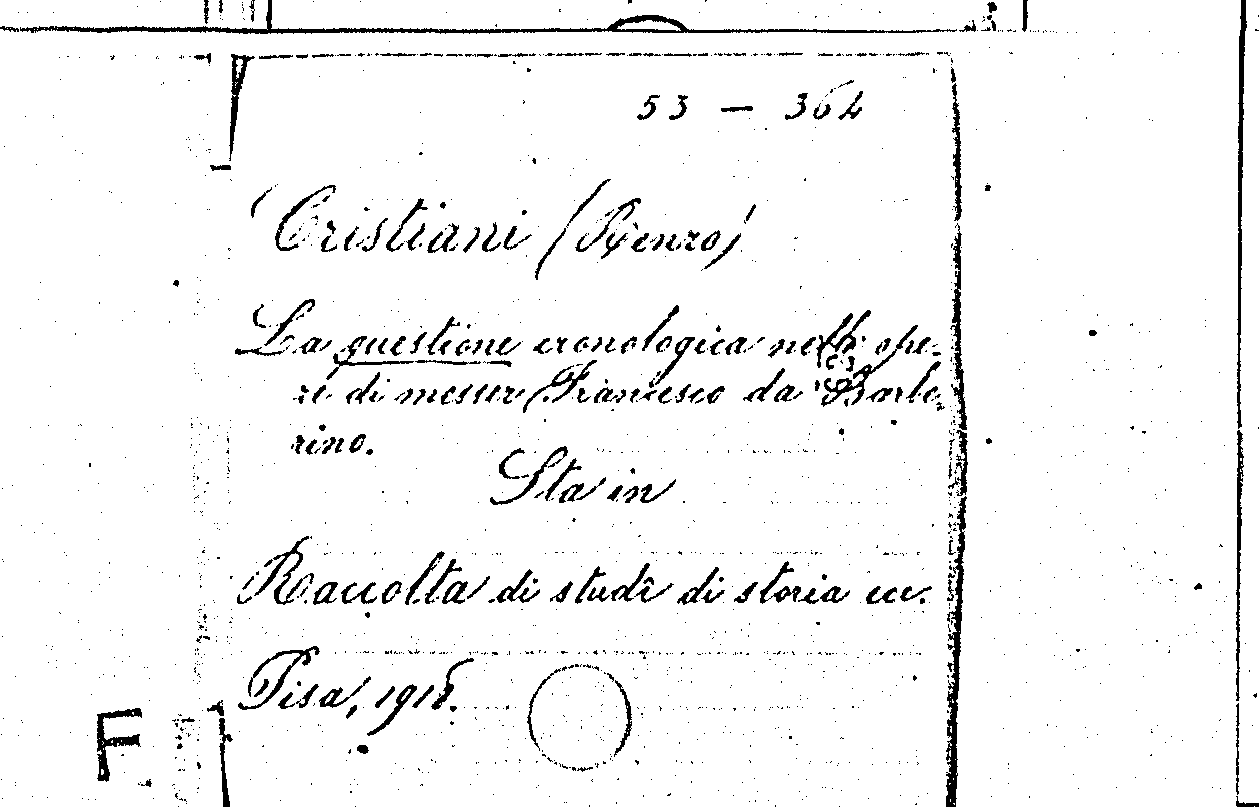 53 — 364
Cristiani (Renzo)
La questione cronologica nelle ope-
re di messer Francesco da Barbe-
rino.
Sta in
Raccolta di studî di storia ecc.
Pisa, 1918.
F